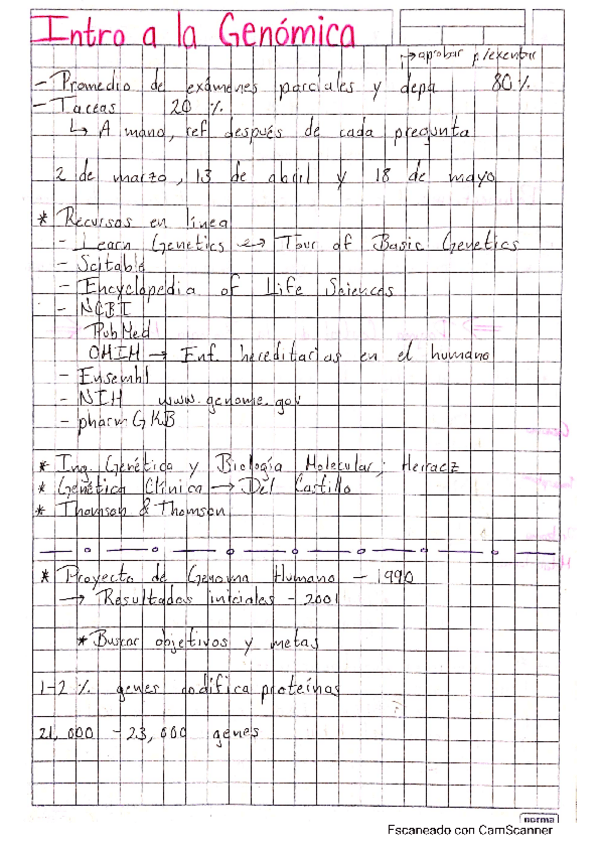 Intro a la Genómica
→ aprobar p/exentar
- Promedio de exámenes parciales y depa 80%
- Tareas 20 %
↳ A mano, ref después de cada pregunta
2 de marzo, 13 de abril y 18 de mayo
* Recursos en línea
- Learn Genetics ↔ Tour of Basic Genetics
- Scitable
- Encyclopedia of Life Sciences
- NCBI
PubMed
OMIM → Enf. hereditarias en el humano
- Ensembl
- NIH www.genome.gov
- pharm GKB
* Ing. Genética y Biología Molecular; Herraez
* Genética Clínica → Del Castillo
* Thomson & Thomson
* Proyecto de Genoma Humano - 1990
→ Resultados iniciales - 2001
* Buscar objetivos y metas
1-2 % genes codifica proteínas
21,000 - 23,000 genes
norma
Escaneado con CamScanner